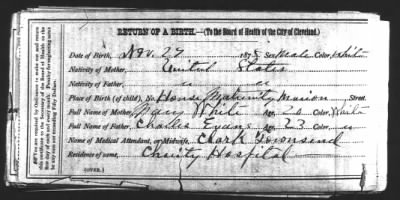 RETURN OF A BIRTH.—(To the Board of Health of the City of Cleveland.)
Date of Birth, Nov. 27 1878 Sex Male Color White
Nativity of Mother, United States
Nativity of Father, " "
Place of Birth (of child), No. House Maternity Marion Street.
Full Name of Mother, Mary White Age, 20 Color, White
Full Name of Father, Charles Evans Age, 23 Color, "
Name of Medical Attendant, or Midwife, Clark Townsend
Residence of same, Charity Hospital
(OVER.)